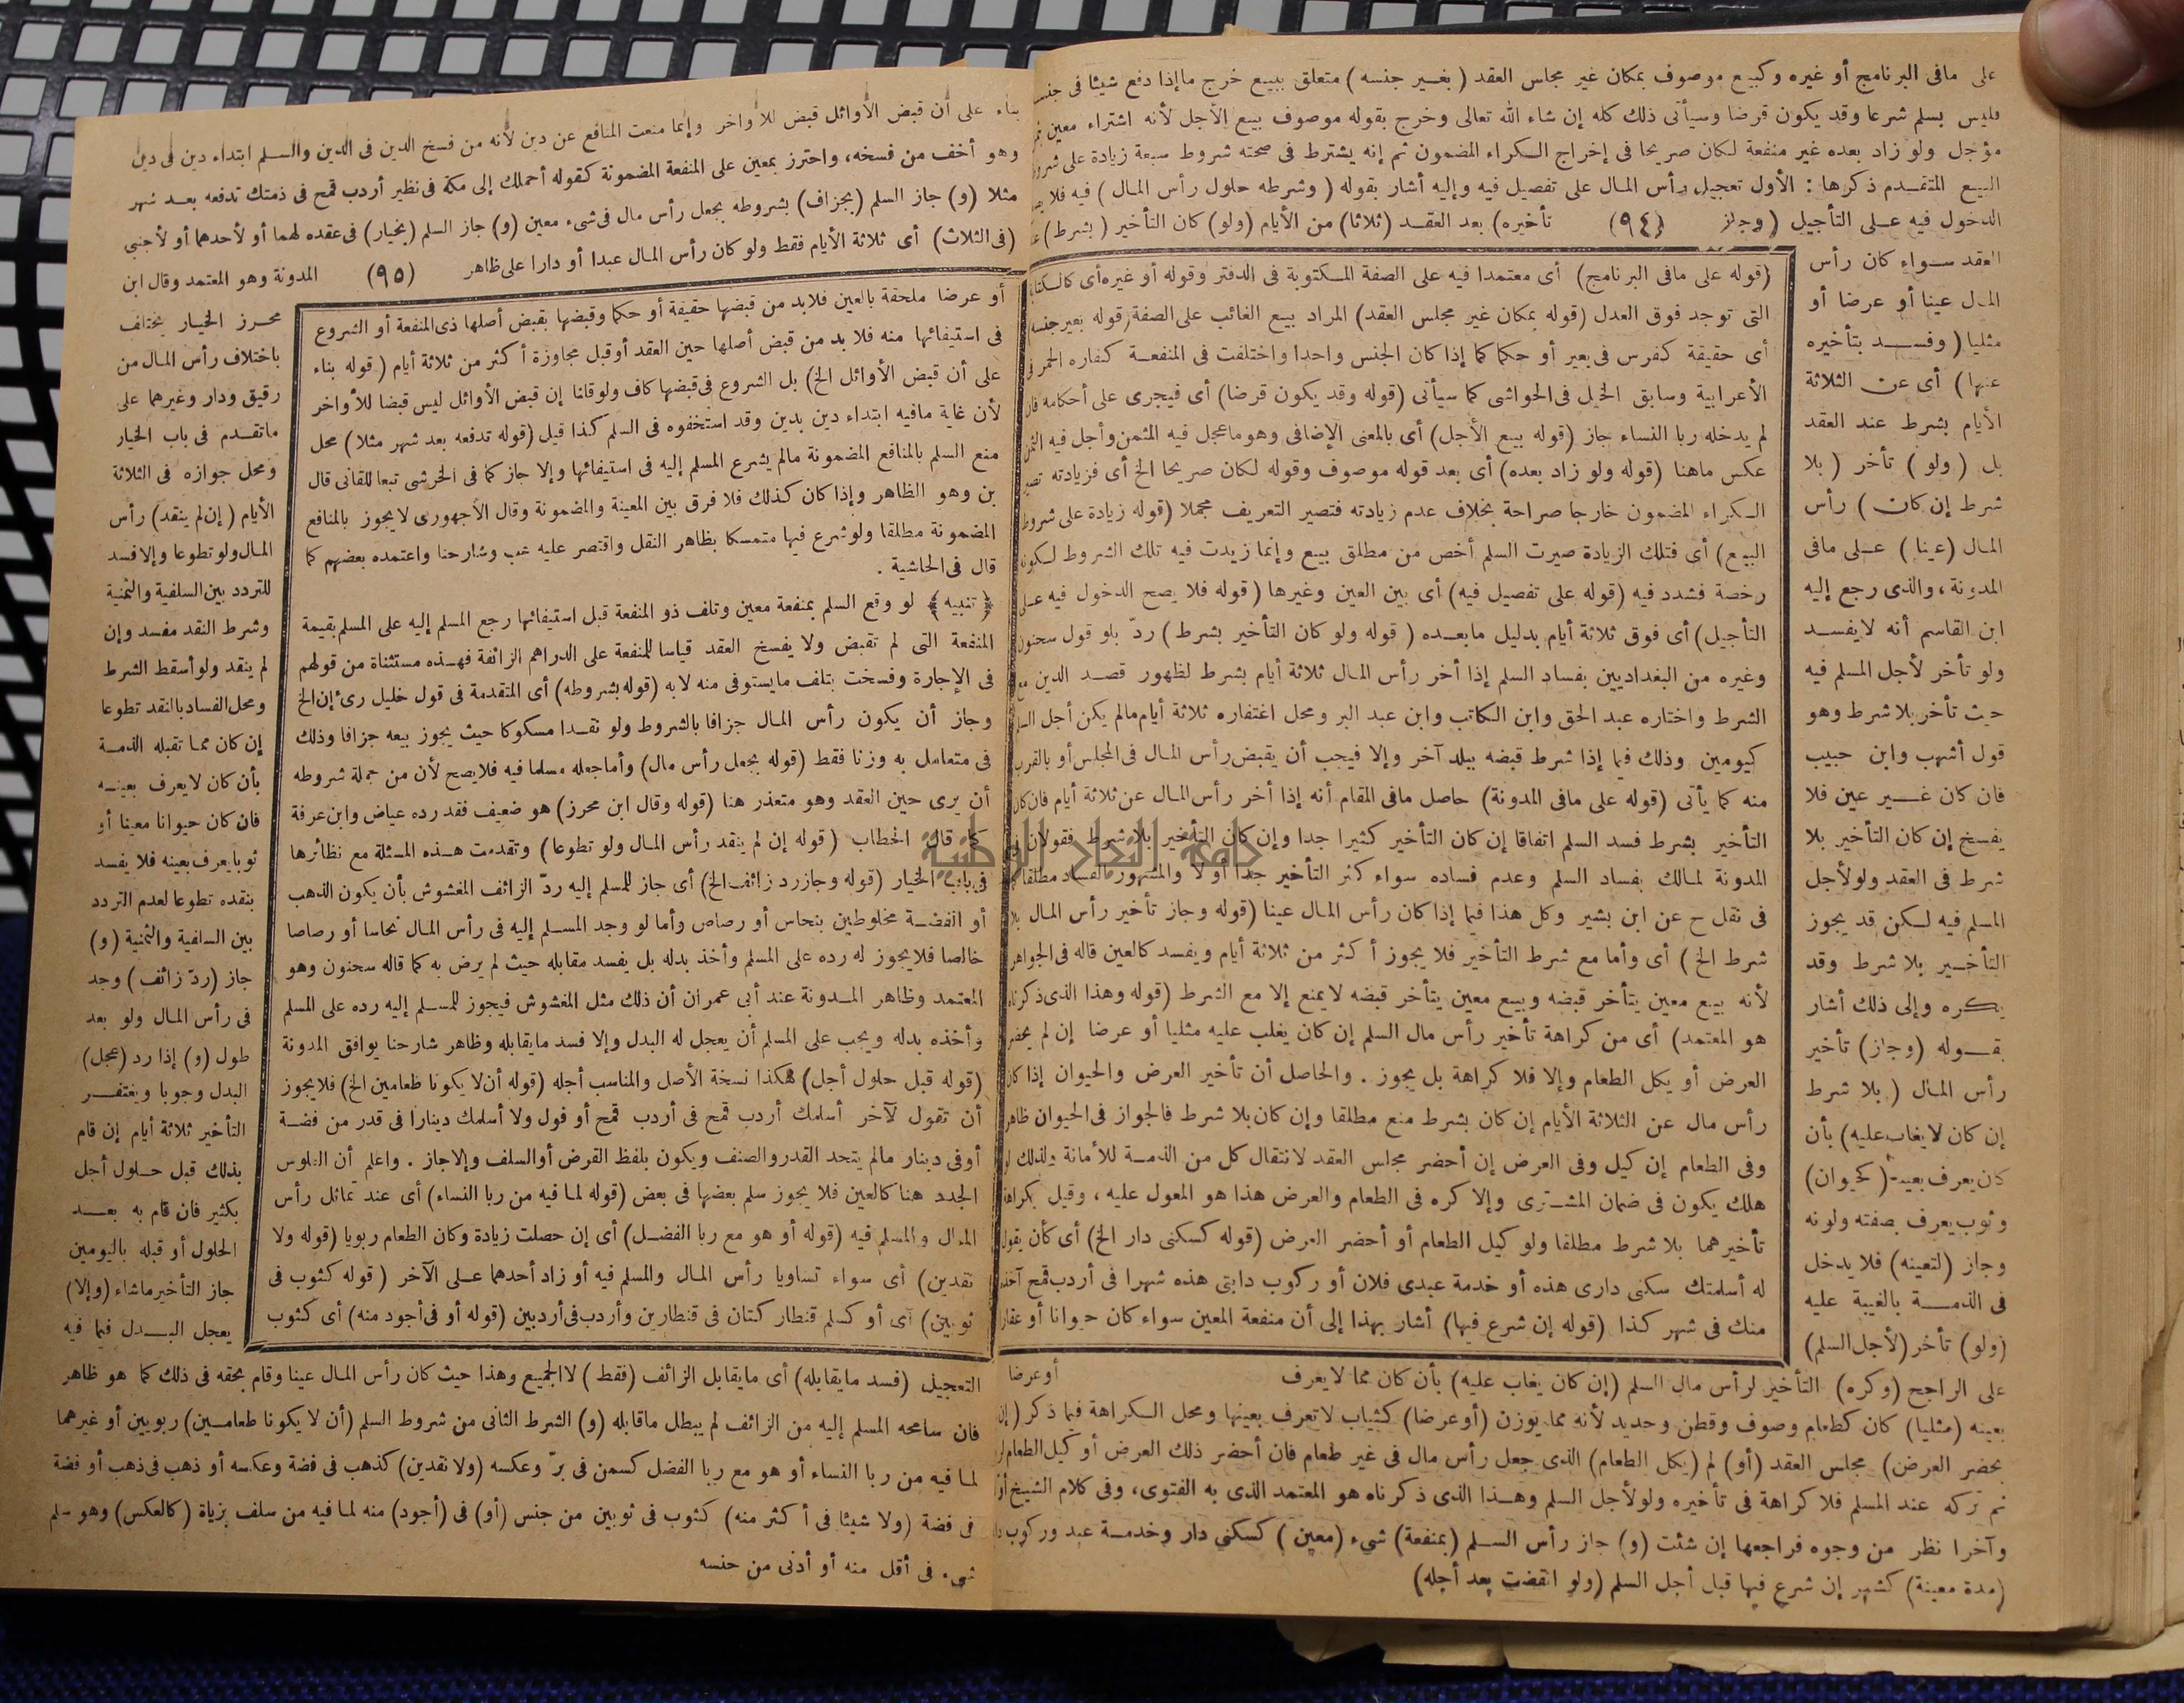 على مافى البرنامج أو غيره وكبيع موصوف بمكان غير مجلس العقد (بغير جنسه) متعلق ببيع خرج ما إذا دفع شيئا فى جنسه
فليس بسلم شرعا وقد يكون قرضا وسيأتى ذلك كله إن شاء الله تعالى وخرج بقوله موصوف بيع الأجل لأنه اشتراء معين
مؤجل ولو زاد بعده غير منفعة لكان صريحا فى إخراج الكراء المضمون ثم إنه يشترط فى صحته شروط سبعة زيادة على شروط
البيع المتقدم ذكرها : الأول تعجيل رأس المال على تفصيل فيه وإليه أشار بقوله (وشرطه حلول رأس المال) فيه فلا
الدخول فيه على التأجيل (وجاز (٩٤) تأخيره) بعد العقد (ثلاثا) من الأيام (ولو) كان التأخير (بشرط)
العقد سواء كان رأس
المال عينا أو عرضا أو
مثليا (وفسد بتأخيره
عنها) أى عن الثلاثة
الأيام بشرط عند العقد
بل (ولو) تأخر (بلا
شرط إن كان) رأس
المال (عينا) على مافى
المدونة ، والذى رجع إليه
ابن القاسم أنه لايفسد
ولو تأخر لأجل المسلم فيه
حيث تأخر بلا شرط وهو
قول أشهب وابن حبيب
فان كان غير عين فلا
يفسخ إن كان التأخير بلا
شرط فى العقد ولو لأجل
المسلم فيه لكن قد يجوز
التأخير بلا شرط وقد
يكره وإلى ذلك أشار
بقوله (وجاز) تأخير
رأس المال (بلا شرط
إن كان لايغاب عليه) بأن
كان يعرف بعينه (كحيوان)
وثوب يعرف بصفته ولونه
وجاز (لتعينه) فلا يدخل
فى الذمة بالغيبة عليه
(ولو) تأخر (لأجل السلم)
(قوله على مافى البرنامج) أى معتمدا فيه على الصفة المكتوبة فى الدفتر وقوله أو غيره أى كالكتابة
التى توجد فوق العدل (قوله بمكان غير مجلس العقد) المراد بيع الغائب على الصفة (قوله بغير جنسه)
أى حقيقة كفرس فى بعير أو حكما كما إذا كان الجنس واحدا واختلفت فى المنفعة كفاره الحمر فى
الأعرابية وسابق الخيل فى الحواشى كما سيأتى (قوله وقد يكون قرضا) أى فيجرى على أحكامه فان
لم يدخله ربا النساء جاز (قوله بيع الأجل) أى بالمعنى الإضافى وهو ماعجل فيه المثمن وأجل فيه الثمن
عكس ماهنا (قوله ولو زاد بعده) أى بعد قوله موصوف وقوله لكان صريحا الخ أى فزيادته تصير
الكراء المضمون خارجا صراحة بخلاف عدم زيادته فتصير التعريف مجملا (قوله زيادة على شروط
البيع) أى فتلك الزيادة صيرت السلم أخص من مطلق بيع وإنما زيدت فيه تلك الشروط لكونه
رخصة فشدد فيه (قوله على تفصيل فيه) أى بين العين وغيرها (قوله فلا يصح الدخول فيه على
التأجيل) أى فوق ثلاثة أيام بدليل مابعده (قوله ولو كان التأخير بشرط) ردّ بلو قول سحنون
وغيره من البغداديين بفساد السلم إذا أخر رأس المال ثلاثة أيام بشرط لظهور قصد الدين مع
الشرط واختاره عبد الحق وابن الكاتب وابن عبد البر ومحل اغتفاره ثلاثة أيام مالم يكن أجل السلم
كيومين وذلك فيما إذا شرط قبضه ببلد آخر وإلا فيجب أن يقبض رأس المال فى المجلس أو بالقرب
منه كما يأتى (قوله على مافى المدونة) حاصل مافى المقام أنه إذا أخر رأس المال عن ثلاثة أيام فان كان
التأخير بشرط فسد السلم اتفاقا إن كان التأخير كثيرا جدا وإن كان التأخير بلا شرط فقولان فى
المدونة لمالك بفساد السلم وعدم فساده سواء كثر التأخير جدا أو لا والمشهور الفساد مطلقا
فى نقل ح عن ابن بشير وكل هذا فيما إذا كان رأس المال عينا (قوله وجاز تأخير رأس المال بلا
شرط الخ) أى وأما مع شرط التأخير فلا يجوز أكثر من ثلاثة أيام ويفسد كالعين قاله فى الجواهر
لأنه بيع معين يتأخر قبضه وبيع معين يتأخر قبضه لايمنع إلا مع الشرط (قوله وهذا الذى ذكرناه
هو المعتمد) أى من كراهة تأخير رأس مال السلم إن كان يغلب عليه مثليا أو عرضا إن لم يحضر
العرض أو يكل الطعام وإلا فلا كراهة بل يجوز . والحاصل أن تأخير العرض والحيوان إذا كان
رأس مال عن الثلاثة الأيام إن كان بشرط منع مطلقا وإن كان بلا شرط فالجواز فى الحيوان ظاهر
وفى الطعام إن كيل وفى العرض إن أحضر مجلس العقد لانتقال كل من الذمة للأمانة ولذلك لو
هلك يكون فى ضمان المشترى وإلا كره فى الطعام والعرض هذا هو المعول عليه ، وقيل بكراهة
تأخيرهما بلا شرط مطلقا ولو كيل الطعام أو أحضر العرض (قوله كسكنى دار الخ) أى كأن يقول
له أسلمتك سكنى دارى هذه أو خدمة عبدى فلان أو ركوب دابتى هذه شهرا فى أردب قمح آخذه
منك فى شهر كذا (قوله إن شرع فيها) أشار بهذا إلى أن منفعة المعين سواء كان حيوانا أو عقارا
أو عرضا
على الراجح (وكره) التأخير لرأس مال السلم (إن كان يغاب عليه) بأن كان مما لايعرف
بعينه (مثليا) كان كطعام وصوف وقطن وحديد لأنه مما يوزن (أو عرضا) كثياب لاتعرف بعينها ومحل الكراهة فيما ذكر (إن
يحضر العرض) مجلس العقد (أو) لم (يكل الطعام) الذى جعل رأس مال فى غير طعام فان أحضر ذلك العرض أو كيل الطعام
ثم تركه عند المسلم فلا كراهة فى تأخيره ولو لأجل السلم وهذا الذى ذكرناه هو المعتمد الذى به الفتوى، وفى كلام الشيخ أولا
وآخرا نظر من وجوه فراجعها إن شئت (و) جاز رأس السلم (بمنفعة) شىء (معين) كسكنى دار وخدمة عبد وركوب
(مدة معينة) كشهر إن شرع فيها قبل أجل السلم (ولو انقضت بعد أجله)
بناء على أن قبض الأوائل قبض للأواخر وإنما منعت المنافع عن دين لأنه من فسخ الدين فى الدين والسلم ابتداء دين فى دين
وهو أخف من فسخه، واحترز بمعين على المنفعة المضمونة كقوله أحملك إلى مكة فى نظير أردب قمح فى ذمتك تدفعه بعد شهر
مثلا (و) جاز السلم (بجزاف) بشروطه بجعل رأس مال فى شىء معين (و) جاز السلم (بخيار) فى عقده لهما أو لأحدهما أو لأجنبى
(فى الثلاث) أى ثلاثة الأيام فقط ولو كان رأس المال عبدا أو دارا على ظاهر (٩٥) المدونة وهو المعتمد وقال ابن
أو عرضا ملحقة بالعين فلابد من قبضها حقيقة أو حكما وقبضها بقبض أصلها ذى المنفعة أو الشروع
فى استيفائها منه فلا بد من قبض أصلها حين العقد أو قبل مجاوزة أكثر من ثلاثة أيام (قوله بناء
على أن قبض الأوائل الخ) بل الشروع فى قبضها كاف ولو قلنا إن قبض الأوائل ليس قبضا للأواخر
لأن غاية مافيه ابتداء دين بدين وقد استخفوه فى السلم كذا قيل (قوله تدفعه بعد شهر مثلا) محل
منع السلم بالمنافع المضمونة مالم يشرع المسلم إليه فى استيفائها وإلا جاز كما فى الخرشى تبعا للقانى قال
بن وهو الظاهر وإذا كان كذلك فلا فرق بين المعينة والمضمونة وقال الأجهورى لايجوز بالمنافع
المضمونة مطلقا ولو شرع فيها متمسكا بظاهر النقل واقتصر عليه عب وشارحنا واعتمده بعضهم كما
قال فى الحاشية .
﴿تنبيه﴾ لو وقع السلم بمنفعة معين وتلف ذو المنفعة قبل استيفائها رجع المسلم إليه على المسلم بقيمة
المنفعة التى لم تقبض ولا يفسخ العقد قياسا للمنفعة على الدراهم الزائفة فهذه مستثناة من قولهم
فى الإجارة وفسخت بتلف مايستوفى منه لا به (قوله بشروطه) أى المتقدمة فى قول خليل رىء إن الخ
وجاز أن يكون رأس المال جزافا بالشروط ولو نقدا مسكوكا حيث يجوز بيعه جزافا وذلك
فى متعامل به وزنا فقط (قوله بجعل رأس مال) وأما جعله مسلما فيه فلا يصح لأن من جملة شروطه
أن يرى حين العقد وهو متعذر هنا (قوله وقال ابن محرز) هو ضعيف فقد رده عياض وابن عرفة
كما قال الحطاب (قوله إن لم ينقد رأس المال ولو تطوعا) وتقدمت هذه المسئلة مع نظائرها
فى باب الخيار (قوله وجاز رد زائف الخ) أى جاز للمسلم إليه ردّ الزائف المغشوش بأن يكون الذهب
أو الفضة مخلوطين بنحاس أو رصاص وأما لو وجد المسلم إليه فى رأس المال نحاسا أو رصاصا
خالصا فلا يجوز له رده على المسلم وأخذ بدله بل يفسد مقابله حيث لم يرض به كما قاله سحنون وهو
المعتمد وظاهر المدونة عند أبى عمران أن ذلك مثل المغشوش فيجوز للمسلم إليه رده على المسلم
وأخذه بدله ويجب على المسلم أن يعجل له البدل وإلا فسد مايقابله وظاهر شارحنا يوافق المدونة
(قوله قبل حلول أجل) هكذا نسخة الأصل والمناسب أجله (قوله أن لا يكونا طعامين الخ) فلا يجوز
أن تقول لآخر أسلمك أردب قمح فى أردب قمح أو فول ولا أسلمك دينارا فى قدر من فضة
أو فى دينار مالم يتحد القدر والصنف ويكون بلفظ القرض أو السلف وإلا جاز . واعلم أن الفلوس
الجدد هنا كالعين فلا يجوز سلم بعضها فى بعض (قوله لما فيه من ربا النساء) أى عند تماثل رأس
المال والمسلم فيه (قوله أو هو مع ربا الفضل) أى إن حصلت زيادة وكان الطعام ربويا (قوله ولا
نقدين) أى سواء تساويا رأس المال والمسلم فيه أو زاد أحدهما على الآخر (قوله كثوب فى
ثوبين) أى أو كسلم قنطار كتان فى قنطارين وأردب فى أردبين (قوله أو فى أجود منه) أى كثوب
محرز الخيار يختلف
باختلاف رأس المال من
رقيق ودار وغيرهما على
ماتقدم فى باب الخيار
ومحل جوازه فى الثلاثة
الأيام (إن لم ينقد) رأس
المال ولو تطوعا وإلا فسد
للتردد بين السلفية والثمنية
وشرط النقد مفسد وإن
لم ينقد ولو أسقط الشرط
ومحل الفساد بالنقد تطوعا
إن كان مما تقبله الذمة
بأن كان لايعرف بعينه
فان كان حيوانا معينا أو
ثوبا يعرف بعينه فلا يفسد
بنقده تطوعا لعدم التردد
بين السلفية والثمنية (و)
جاز (ردّ زائف) وجد
فى رأس المال ولو بعد
طول (و) إذا رد (عجل)
البدل وجوبا ويغتفر
التأخير ثلاثة أيام إن قام
بذلك قبل حلول أجل
بكثير فان قام به بعد
الحلول أو قبله باليومين
جاز التأخير ماشاء (وإلا)
يعجل البدل فيما فيه
التعجيل (فسد مايقابله) أى مايقابل الزائف (فقط) لا الجميع وهذا حيث كان رأس المال عينا وقام بحقه فى ذلك كما هو ظاهر
فان سامحه المسلم إليه من الزائف لم يبطل ماقابله (و) الشرط الثانى من شروط السلم (أن لا يكونا طعامين) ربويين أو غيرهما
لما فيه من ربا النساء أو هو مع ربا الفضل كسمن فى برّ وعكسه (ولا نقدين) كذهب فى فضة وعكسه أو ذهب فى ذهب أو فضة
فى فضة (ولا شيئا فى أكثر منه) كثوب فى ثوبين من جنس (أو) فى (أجود) منه لما فيه من سلف بزيادة (كالعكس) وهو سلم
شىء فى أقل منه أو أدنى من جنسه
جامعة النجاح الوطنية